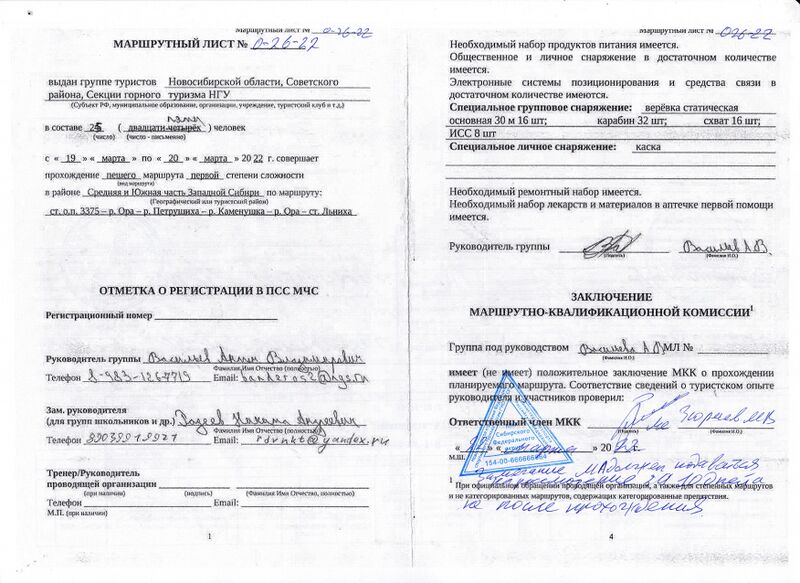 Маршрутный лист № 0-26-22
МАРШРУТНЫЙ ЛИСТ № 0-26-22
выдан группе туристов Новосибирской области, Советского
района, Секции горного туризма НГУ
(Субъект РФ, муниципальное образование, организация, учреждение, туристский клуб и т.д.)
пяти
в составе 25 ( двадцати четырёх ) человек
(число) (число - письменно)
с « 19 » « марта » по « 20 » « марта » 2022 г. совершает
прохождение пешего маршрута первой степени сложности
(вид маршрута)
в районе Средняя и Южная часть Западной Сибири по маршруту:
(Географический или туристский район)
ст. о.п. 3375 – р. Ора – р. Петрушиха – р. Каменушка – р. Ора – ст. Льниха
ОТМЕТКА О РЕГИСТРАЦИИ В ПСС МЧС
Регистрационный номер
Руководитель группы Васильев Антон Владимирович
Фамилия Имя Отчество (полностью)
Телефон 8-983-126-7719 Email:
Зам. руководителя
(для групп школьников и др.) Андреевич
Фамилия Имя Отчество (полностью)
Телефон Email: rdvnkt@yandex.ru
Тренер/Руководитель
проводящей организации
(при наличии) (подпись) (Фамилия Имя Отчество, полностью)
Телефон Email:
М.П. (при наличии)
1
Маршрутный лист № 026-22
Необходимый набор продуктов питания имеется.
Общественное и личное снаряжение в достаточном количестве
имеется.
Электронные системы позиционирования и средства связи в
достаточном количестве имеются.
Специальное групповое снаряжение: верёвка статическая
основная 30 м 16 шт; карабин 32 шт; схват 16 шт;
ИСС 8 шт
Специальное личное снаряжение: каска
Необходимый ремонтный набор имеется.
Необходимый набор лекарств и материалов в аптечке первой помощи
имеется.
Руководитель группы Васильев А.В.
(Подпись) (Фамилия И.О.)
ЗАКЛЮЧЕНИЕ
МАРШРУТНО-КВАЛИФИКАЦИОННОЙ КОМИССИИ1
Группа под руководством Васильева А.В МЛ №
(Фамилия И.О.)
имеет (не имеет) положительное заключение МКК о прохождении
планируемого маршрута. Соответствие сведений о туристском опыте
руководителя и участников проверил:
Ответственный член МКК
(Подпись) (Фамилия И.О.)
« » « марта » 2022
М.Ш.
Сибирского
Федерального
154-00-666666664
Замечание МЛ должен подаваться
на рассмотрение за 10 дней а
1 При официальном обращении проводящей организации, а также для степенных маршрутов
и не категорированных маршрутов, содержащих категорированные препятствия.
не после прохождения.
4